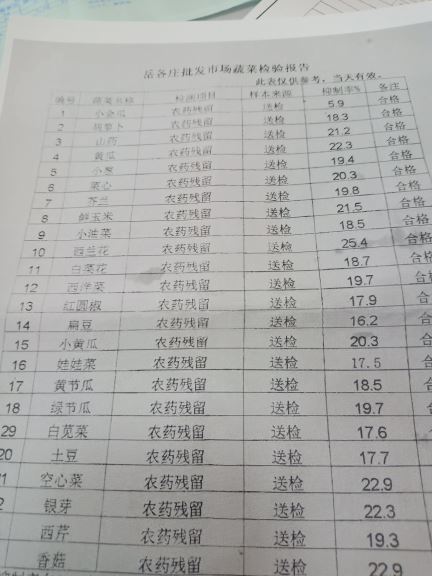 岳各庄批发市场蔬菜检验报告
此表仅供参考，当天有效。
编号 蔬菜名称 检测项目 样本来源 抑制率% 备注
1 小金瓜 农药残留 送检 5.9 合格
2 胡萝卜 农药残留 送检 18.3 合格
3 山药 农药残留 送检 21.2 合格
4 黄瓜 农药残留 送检 22.3 合格
5 小葱 农药残留 送检 19.4 合格
6 菜心 农药残留 送检 20.3 合格
7 芥兰 农药残留 送检 19.8 合格
8 鲜玉米 农药残留 送检 21.5 合格
9 小油菜 农药残留 送检 18.5 合格
10 西兰花 农药残留 送检 25.4 合格
11 白菜花 农药残留 送检 18.7 合格
12 西洋菜 农药残留 送检 19.7 合
13 红圆椒 农药残留 送检 17.9 合
14 扁豆 农药残留 送检 16.2 合
15 小黄瓜 农药残留 送检 20.3 合
16 娃娃菜 农药残留 送检 17.5 合
17 黄节瓜 农药残留 送检 18.5 合
18 绿节瓜 农药残留 送检 19.7 合
29 白苋菜 农药残留 送检 17.6 合
20 土豆 农药残留 送检 17.7
1 空心菜 农药残留 送检 22.9
2 银芽 农药残留 送检 22.3
西芹 农药残留 送检 19.3
香菇 农药残留 送检 22.9